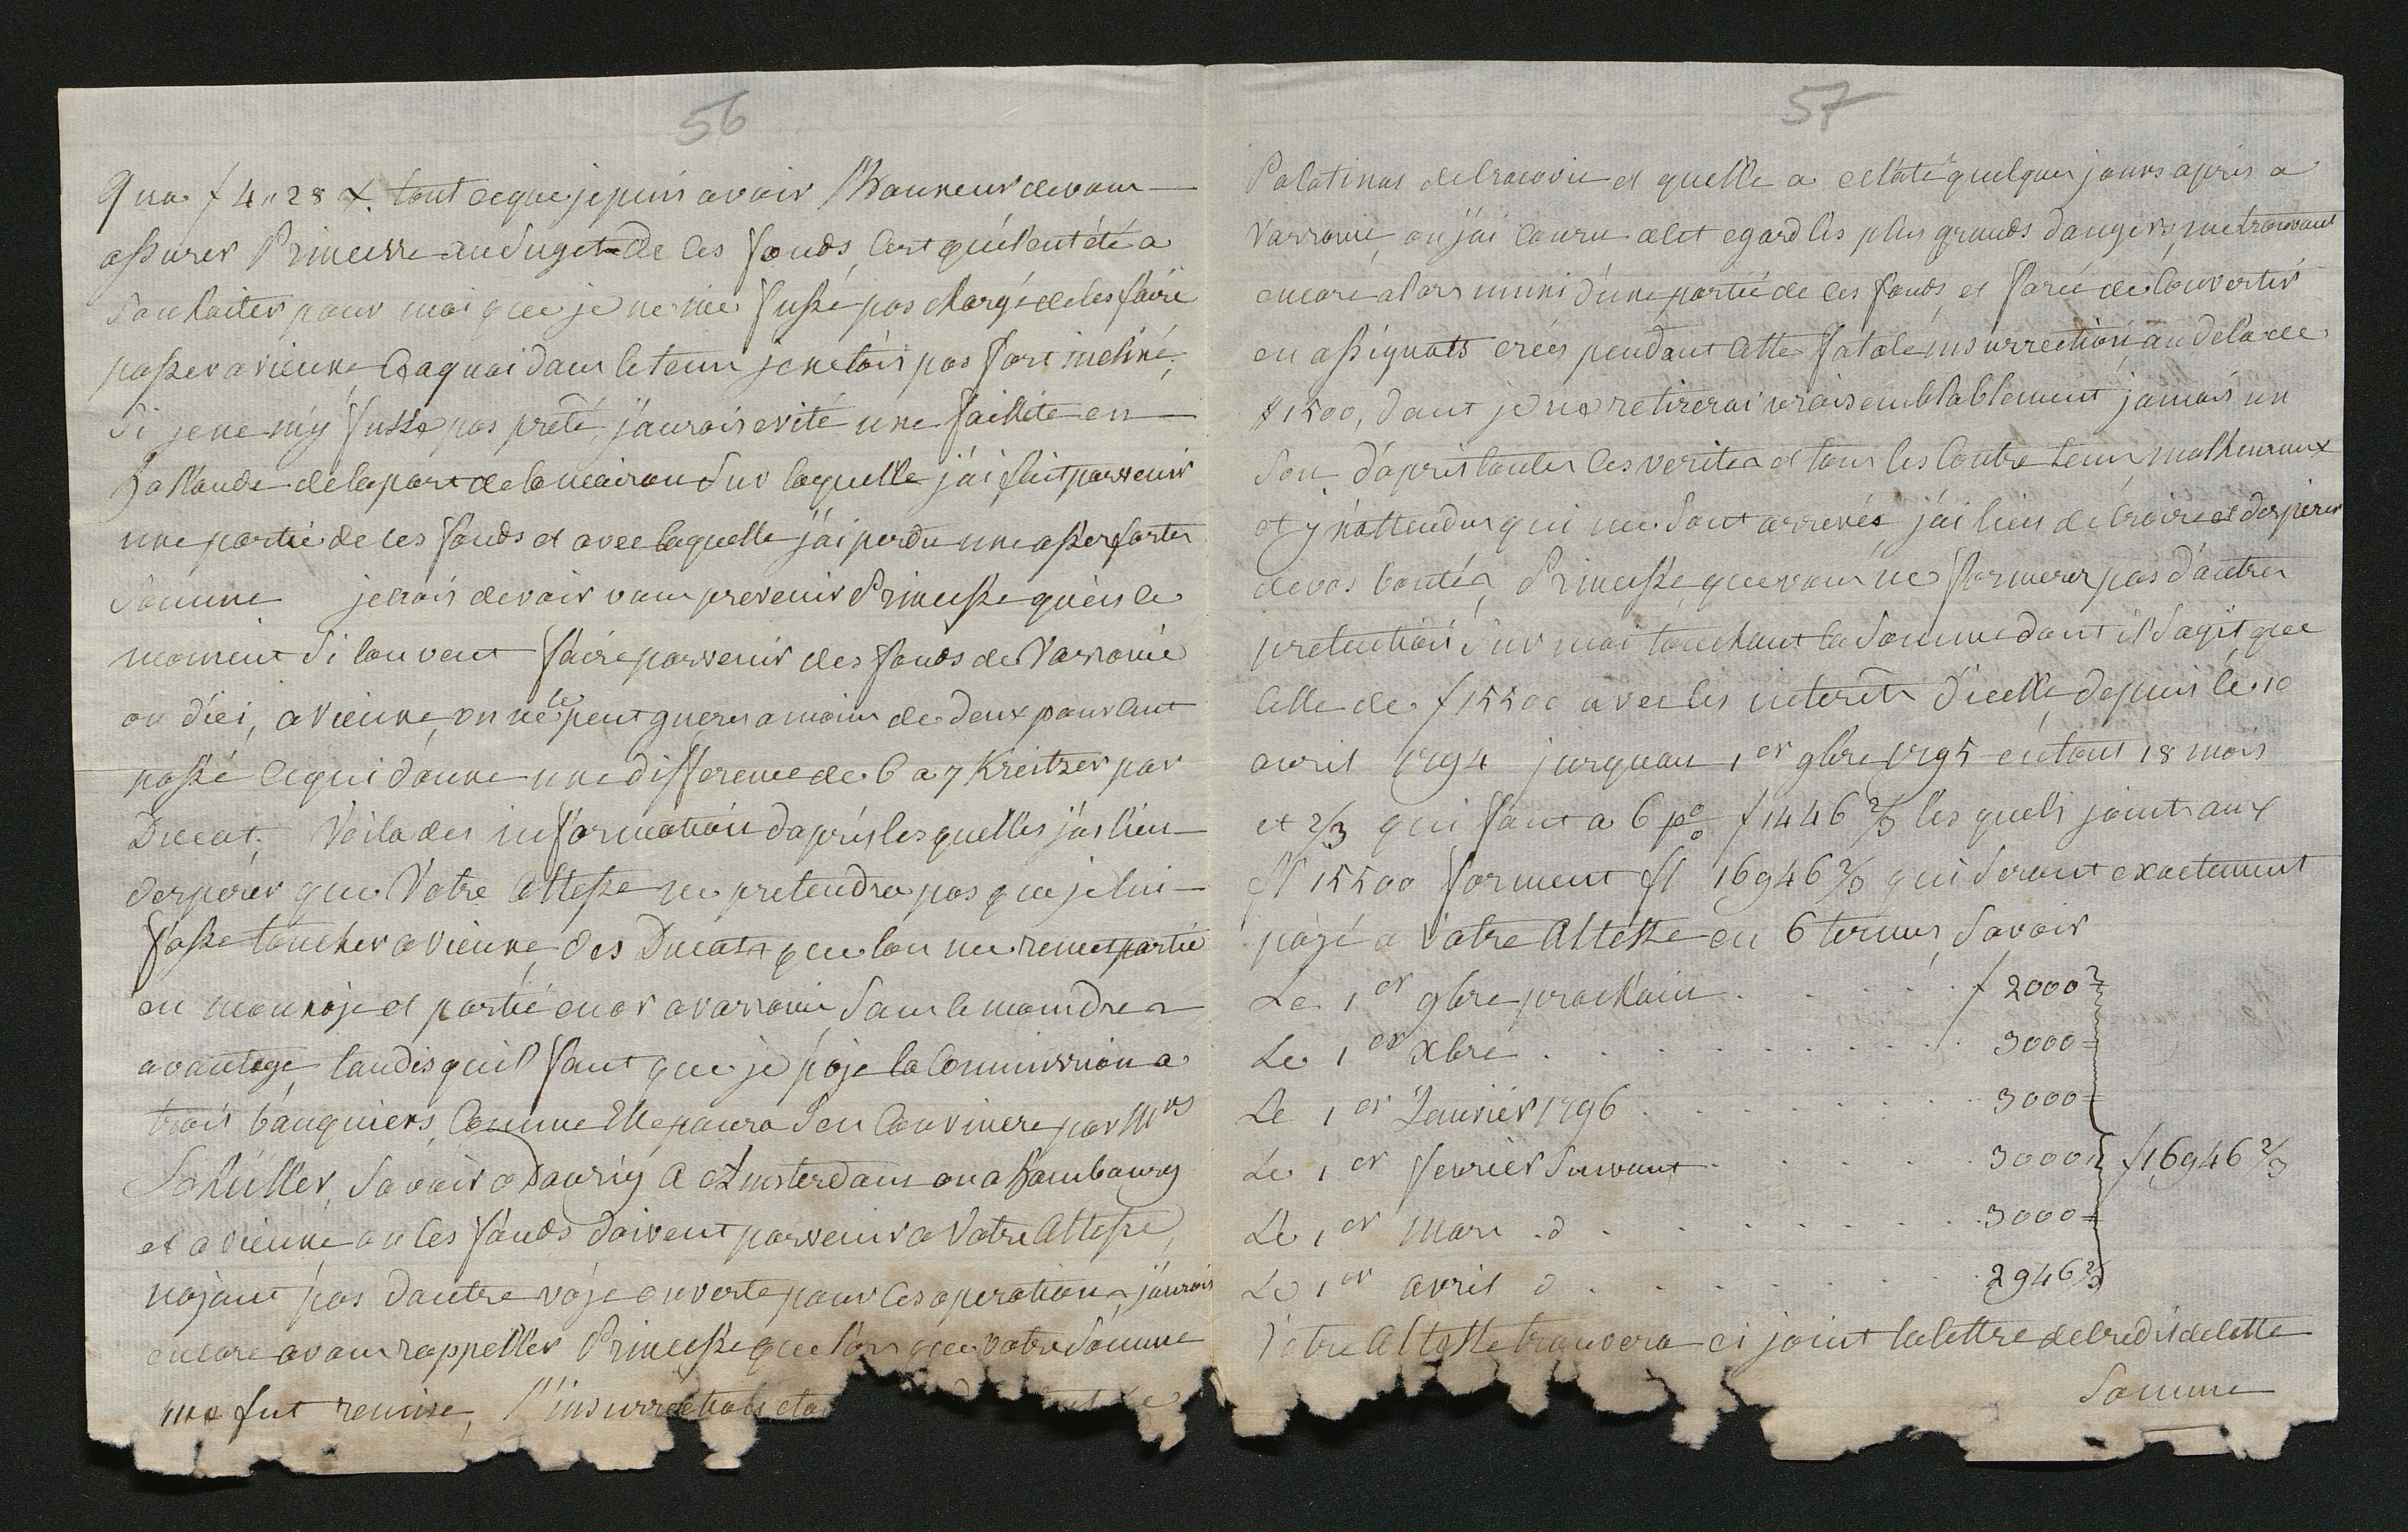 56
qua f 4 " 28 x. tout ceque je puis avoir l'Honneur devous
assurer Princesse au sujet de ces fonds, c'est quil eut été a
souhaiter pour moi que je ne me fusse pas chargé de les faire
passer a vienne, a quoi dans le tems je netois pas fort incliné,
Si je ne my fusse pas preté, j'aurois evité une faillite en
hollande de la part de la maison sur laquelle j'ai fait parvenir
une partie de ces fonds et avec laquelle j'ai perdu une assez forte
Somme je crois devoir vous prevenir Princesse qu'en ce
moment Si l'on veut faire parvenir des fonds de Varsovie
ou d'ici, a vienne, on ne le peut gueres a moins de deux pour Cent
passé ce qui donne une difference de 6 a 7 Kreitzer par
Ducat. Voila des information d'après lesquelles j'ai lieu
d'esperer que Votre Altesse ne pretendra pas que je lui
fasse toucher a vienne des Ducats que l'on me remet partie
en monnoje et partie en or a varsovie, Sans le moindre
avantage, tandis quil faut que je paje la Commission a
trois banquiers, Comme Elle poura s'en Convincre par Mrs
Schuller, Savoir a Danzig a Amsterdam ou a hambourg
et a vienne ou les fonds doivent parvenir a Votre Altesse,
najant pas d'autre voje ouverte pour ces operations, j'aurois
encore a vous rappeller Princesse que lors que votre Somme
me fut remise, l'insurrection etoit
57
Palatinat de Cracovie et quelle a eclaté quelques jours après a
Varsovie, ou j'ai couru a cet egard les plus grands dangers, me trouvant
encore alors muni d'une partie de ces fonds, et forcé de Convertir
en assignats créés pendant cette fatale insurrection, au dela de
# 1500, dont je ne retirerai vraisemblablement jamais un
Sou. d'après toutes ces verités et tous les Contre tems malheureux
et innattendus qui me sont arrivés, j'ai lieu de croire et d'esperer
de vos bontés, Princesse, que vous ne formerez pas d'autres
pretention sur moi touchant la Somme dont il s'agit, que
Celle de f 15500 avec les interets d'icelle, depuis le 10
avril 1794 jusquau 1er 9bre 1795 en tout 18 mois
et 2/3 qui font a 6 p% f 1446 2/3 les quels joints aux
fl 15500 forment fl 16946 2/3 qui seront exactement
payé a Votre Altesse en 6 termes, Savoir
Le 1er 9bre prochain . . . . . f 2000
Le 1er Xbre . . . . . . . . 3000
Le 1er Janvier 1796 . . . . . . 3000
Le 1er fevrier Suivant . . . . . 3000 f 16946 2/3
Le 1er Mars . d . . . . . . . 3000
Le 1er avril d . . . . . . . 2946 2/3
Votre Altesse trouvera ci joint la lettre de Credit de cette
Somme